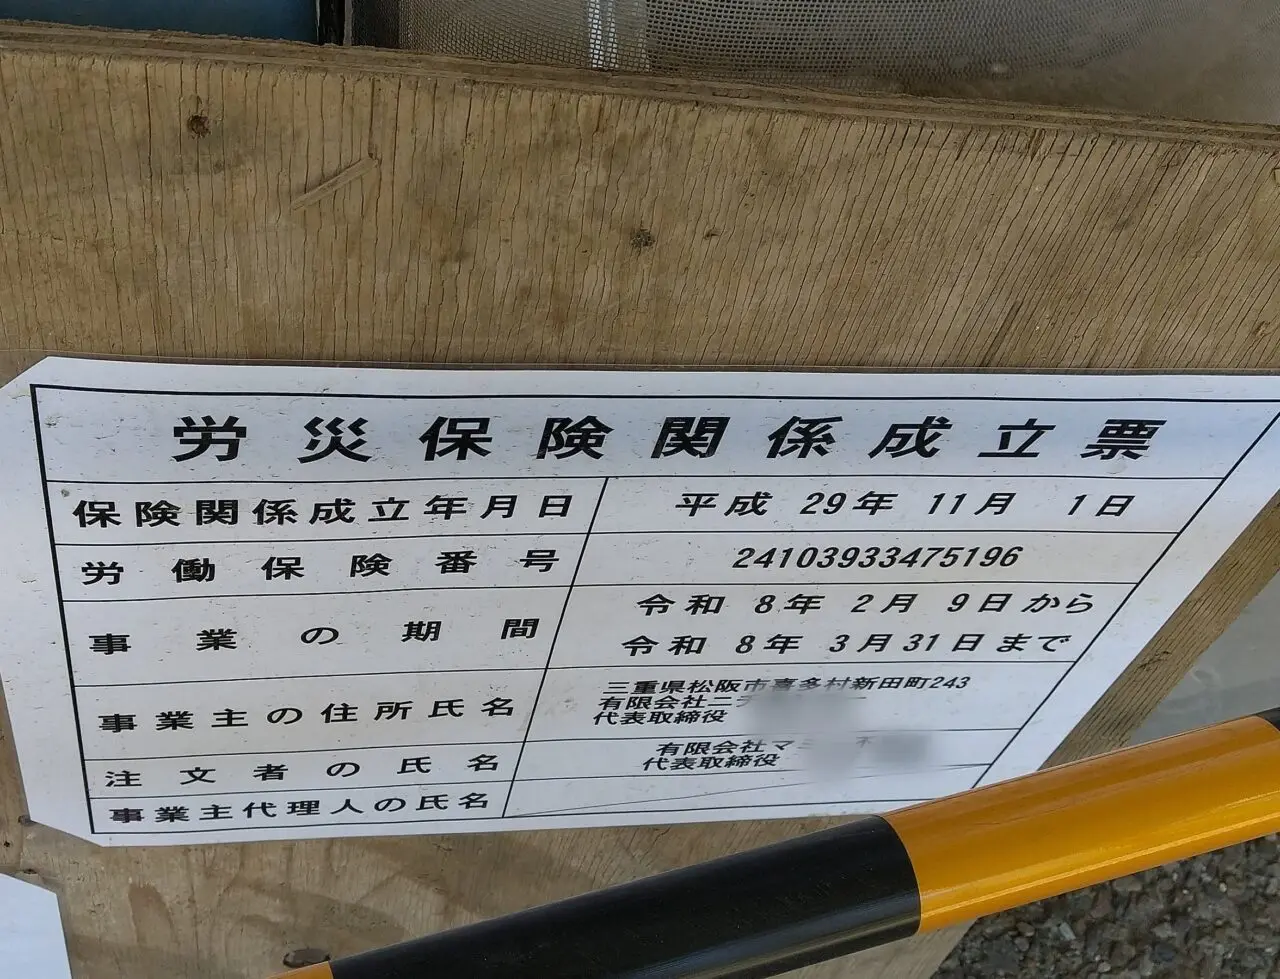 労災保険関係成立票
保険関係成立年月日 平成 29年 11月 1日
労働保険番号 24103933475196
事業の期間 令和 8年 2月 9日から
令和 8年 3月31日まで
事業主の住所氏名 三重県松阪市喜多村新田町243
有限会社ニ
代表取締役
注文者の氏名 有限会社マ
代表取締役
事業主代理人の氏名